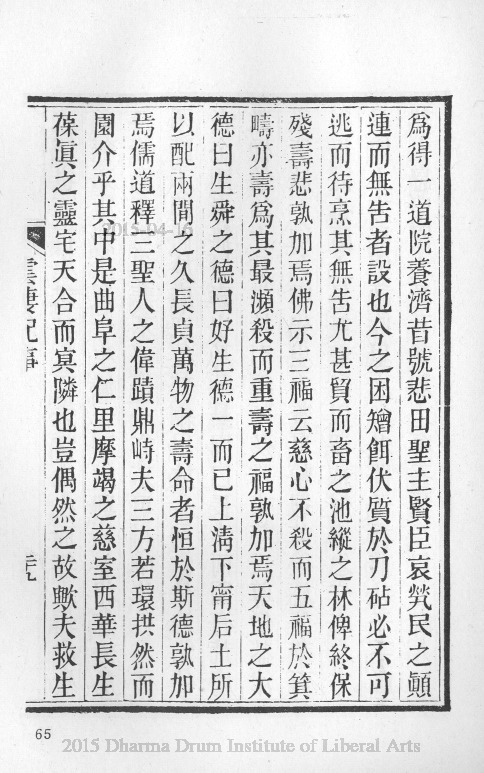 爲得一道院養濟昔號悲田聖主賢臣哀煢民之顚
連而無告者設也今之困矰餌伏質於刀砧必不可
逃而待烹其無告尤甚貿而畜之池縱之林俾終保
殘壽悲孰加焉佛示三福云慈心不殺而五福於箕
疇亦壽爲其最瀕殺而重壽之福孰加焉天地之大
德曰生舜之德曰好生德一而已上淸下甯后土所
以配兩間之久長貞萬物之壽命者恒於斯德孰加
焉儒道釋三聖人之偉蹟鼎峙夫三方若環拱然而
園介乎其中是曲阜之仁里摩竭之慈室西華長生
葆眞之靈宅天合而冥隣也豈偶然之故歟夫救生
雲棲紀事
2015-04-16
65
2015 Dharma Drum Institute of Liberal Arts